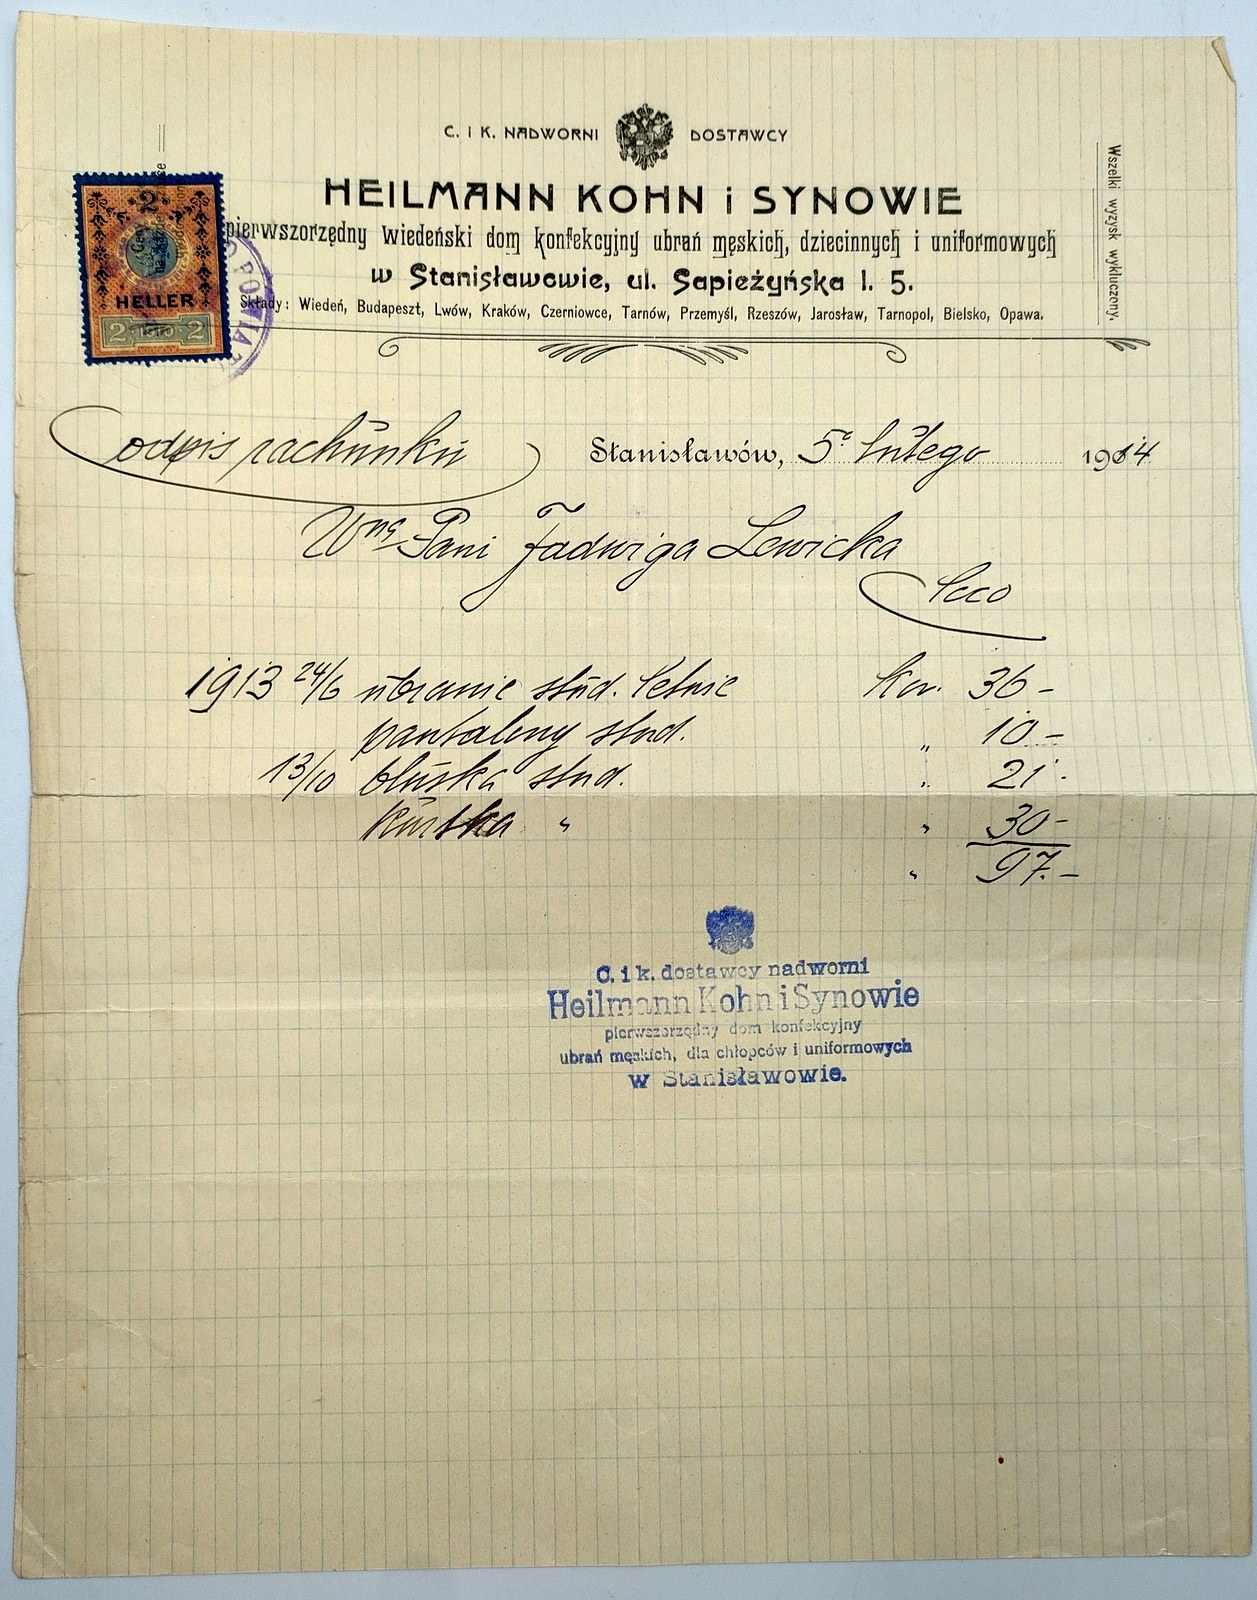 C. i K. NADWORNI DOSTAWCY
HEILMANN KOHN i SYNOWIE
pierwszorzędny wiedeński dom konfekcyjny ubrań męskich, dziecinnych i uniformowych
w Stanisławowie, ul. Sapieżyńska l. 5.
Składy: Wiedeń, Budapeszt, Lwów, Kraków, Czerniowce, Tarnów, Przemyśl, Rzeszów, Jarosław, Tarnopol, Bielsko, Opawa.
Wszelki wyzysk wykluczony.
2
HELLER
2 2
POWIAT
odpis rachunku
Stanisławów, 5 lutego 1914
Wna Pani Jadwiga Lewicka
loco
1913 24/6 ubranie stud. letnie Kor. 36 –
pantalony stud. „ 10 –
13/10 bluska stud. „ 21 –
Kurtka „ „ 30 –
„ 97. –
C. i k. dostawcy nadworni
Heilmann Kohn i Synowie
pierwszorzędny dom konfekcyjny
ubrań męskich, dla chłopców i uniformowych
w Stanisławowie.